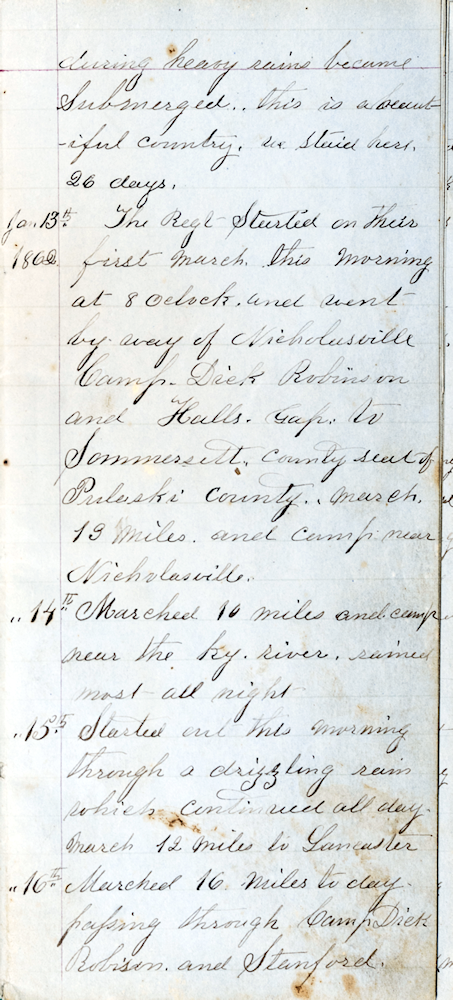 during heavy rains became
Submerged.. this is a beaut
-iful country. we staid here.
26 days.
Jan 13th The Regt Started on their
1862 first march this morning
at 8 Oclock. and went
by way of Nicholasville
Camp. Dick Robinson
and Halls. Gap. to
Sommersett. county seat of
Pulaski County.. march.
13 miles. and camp near
Nicholasville.
" 14th Marched 10 miles and camp
near the Ky. river. rained
most all night
" 15th Started out this morning
through a drizzling rain
which continued all day.
march 12 miles to Lancaster
" 16th Marched 16 miles to day.
passing through Camp Dick
Robison. and Stanford.